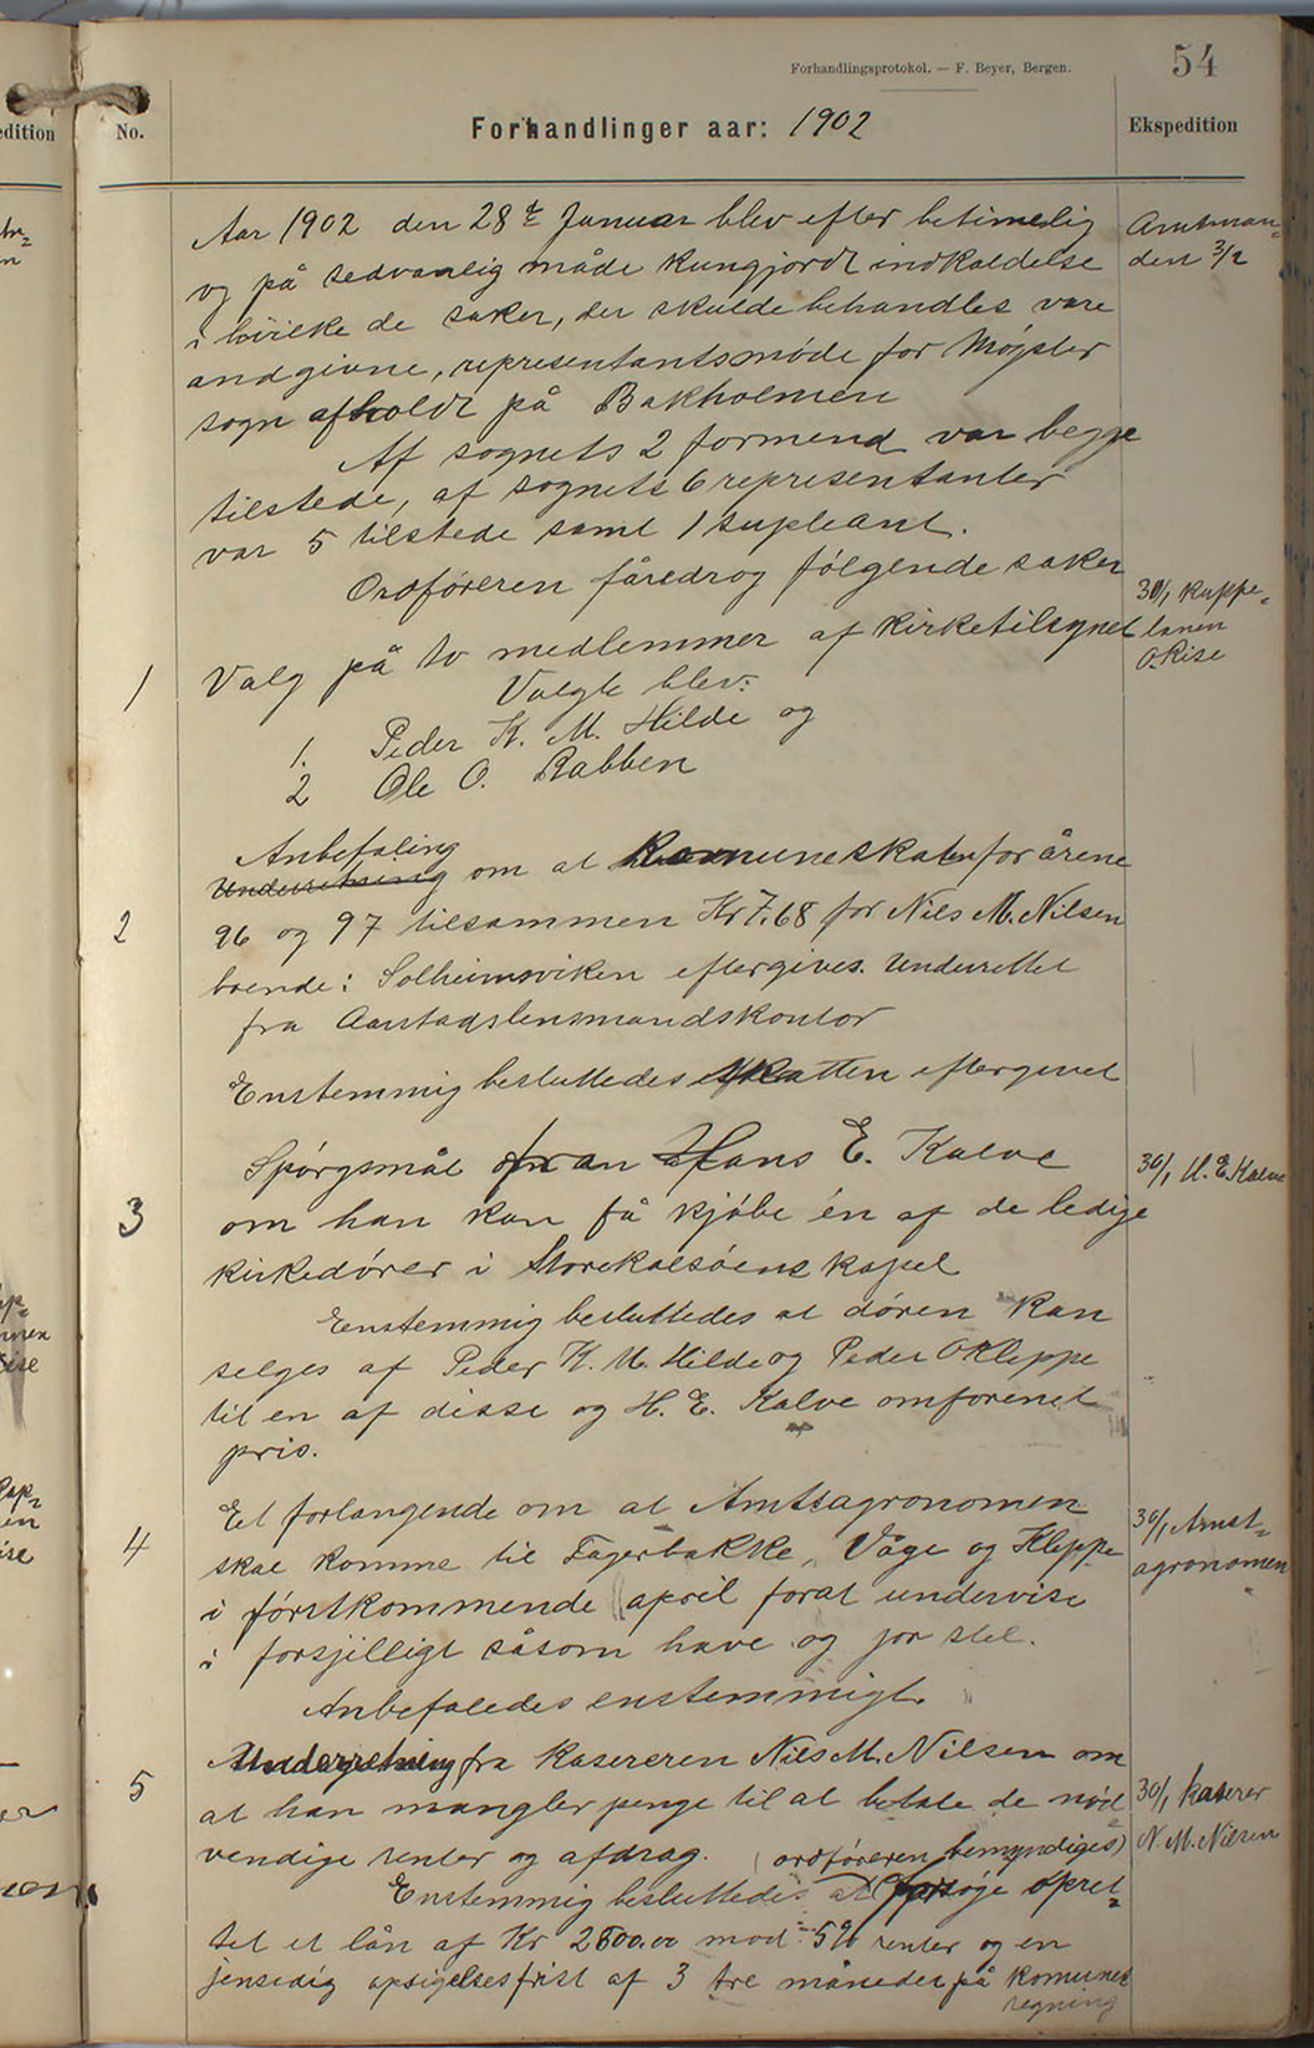 Forhandlingsprotokol. — F. Beyer, Bergen.
54
edition
No.
Forhandlinger aar: 1902
Ekspedition
Aar 1902 den 28de Januar blev efter betimelig
og på sedvanlig måde kungjordt indkaldelse
i hvilke de saker, der skulde behandles vare
andgivne, representantsmøde for Møgster
sogn afholdt på Bakholmen
Amtman-
den 3/2
Af sognets 2 formend var begge
tilstede, af sognets 6 representanter
var 5 tilstede samt 1 supleant.
Ordføreren føredrog følgende saker
1
Valg på to medlemmer af kirketilsynet
30/1 Kappe-
lanen
O. Rise
Valgte blev:
1. Peder K. M. Hilde og
2 Ole O. Rabben
Anbefaling
2
Underretning om at Komuneskaten for årene
96 og 97 tilsammen Kr 7.68 for Nils M. Nilsen
boende i Solheimsviken eftergives. Underrettet
fra Aarstadslensmandskontor
Enstemmig besluttedes skatten eftergivet
3
Spørgsmål fra Hans E. Kalve
om han kan få kjøbe én af de ledige
kirkedører i Storekalsøens kapel
30/1 H. E. Kalve
Enstemmig besluttedes at døren kan
selges af Peder K. M. Hilde og Peder O Kleppe
til en af disse og H. E. Kalve omforenet
pris.
4
Et forlangende om at Amtsagronomen
skal komme til Fagerbakke, Våge og Kleppe
i førstkommende april forat undervise
i forsjilligt såsom have og jor stel.
30/1 Amst-
agronomen
Anbefaledes enstemmigt.
5
Underretning fra kasereren Nils M. Nilsen om
at han mangler penge til at betale de nød-
vendige renter og afdrag. (ordføreren bemyndiges)
30/1 kaserer
N. M. Nilsen
Enstemmig besluttedes at forsøge opret-
tet et lån af Kr 2500.00 mod 5% renter og en
jensedig opsigelsesfrist af 3 tre måneder på komunes
regning